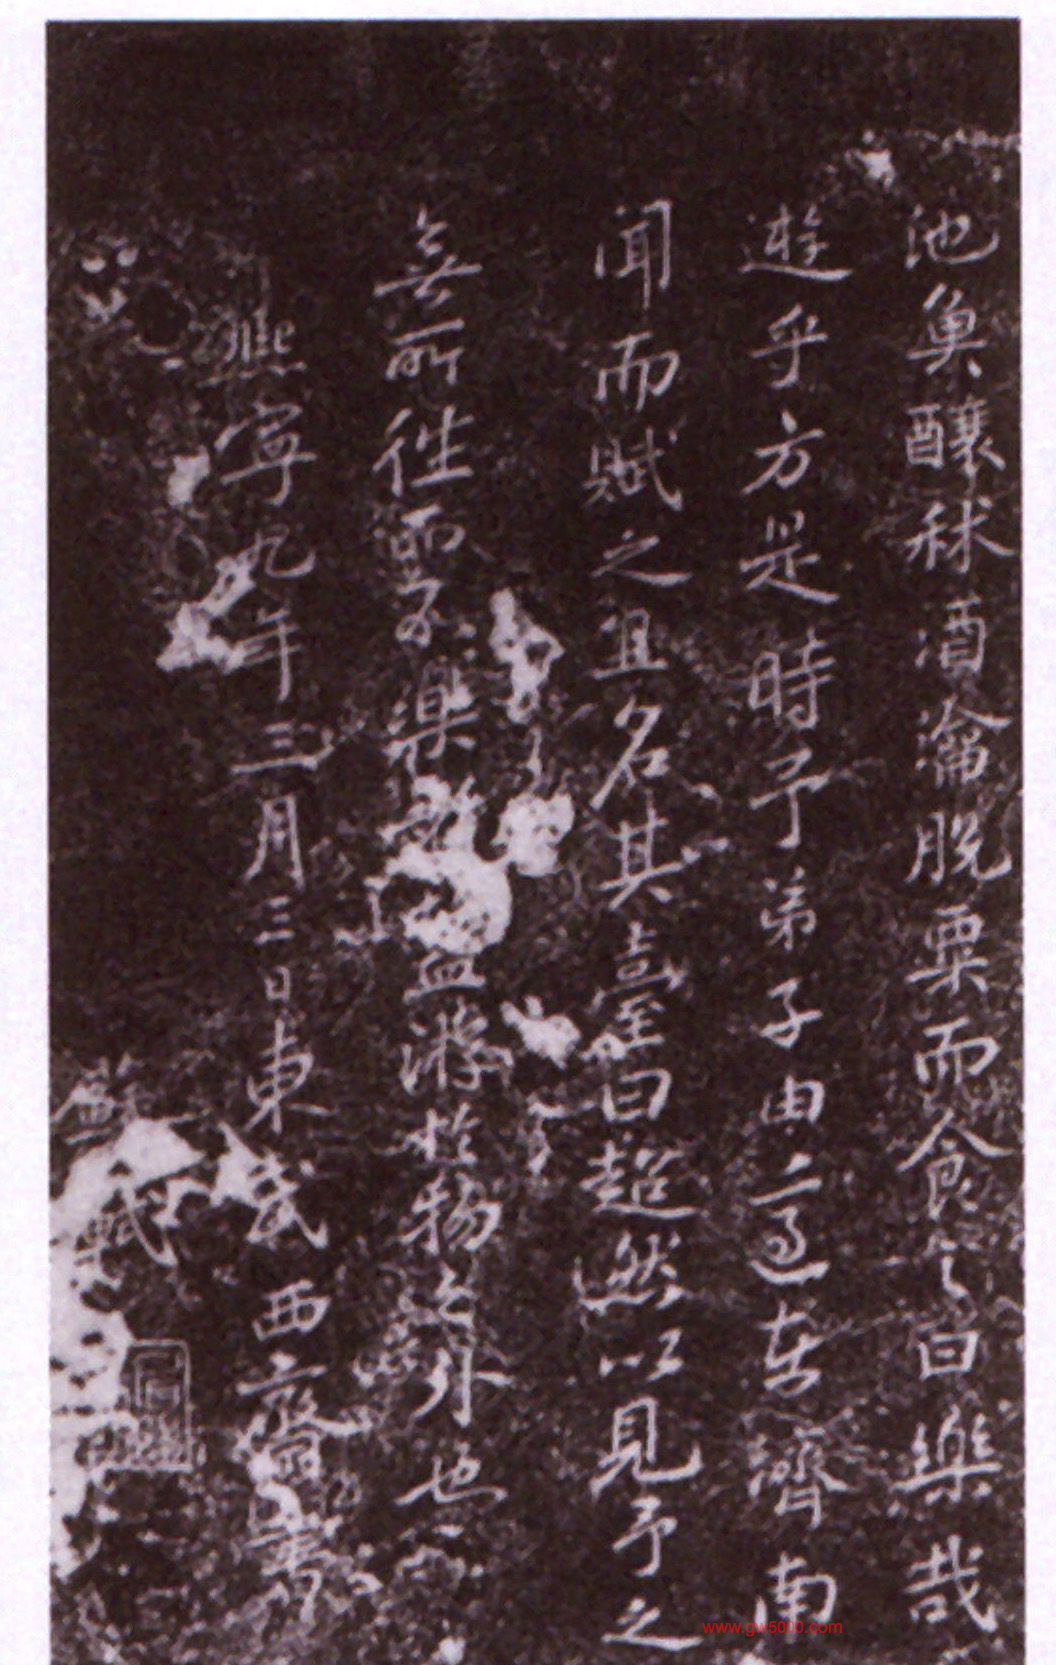 池魚釀秫酒瀹脫粟而食之曰樂哉
遊乎方是時予弟子由適在濟南
聞而賦之且名其臺曰超然以見予之
無所往而不樂者蓋游於物之外也
熙寧九年三月三日東武西齋書
蘇軾
www.gw5000.com